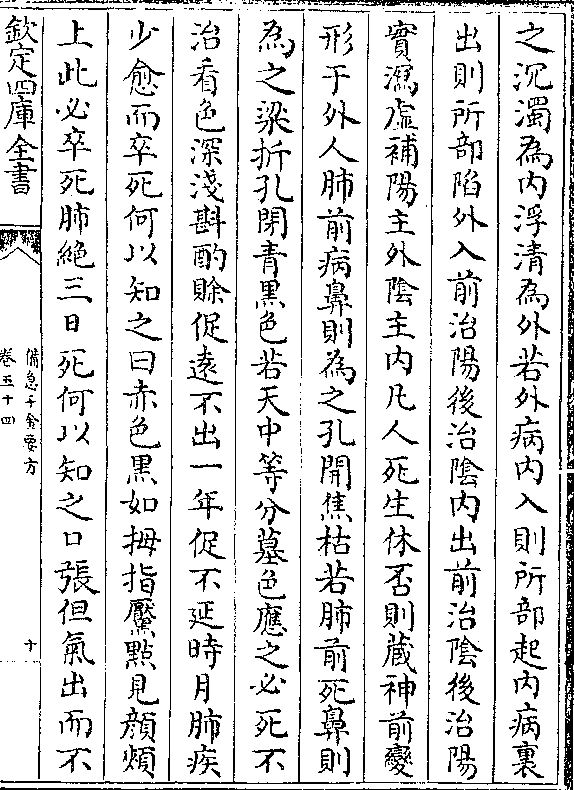 之沉濁為内浮清為外若外病内入則所部起内病裏
出則所部陷外入前治陽後治隂内出前治隂後治陽
實瀉虚補陽主外隂主内凡人死生休否則蔵神前變
形于外人肺前病鼻則為之孔開焦枯若肺前死鼻則
為之梁折孔閉青黒色若天中等分墓色應之必死不
治看色深淺斟酌賖促遠不出一年促不延時月肺疾
少愈而卒死何以知之曰赤色黒如拇指黶點見顔頰
上此必卒死肺絶三日死何以知之口張但氣出而不
欽定四庫全書
備急千金要方
卷五十四
十